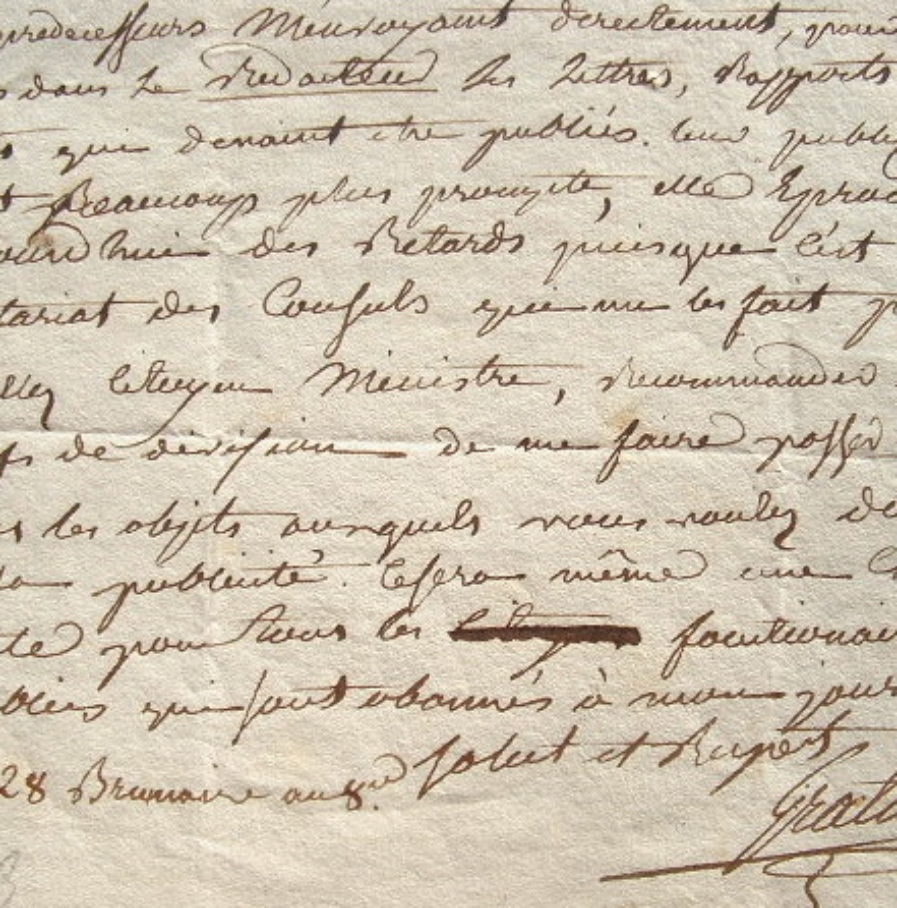 predecesseurs M'envoyaint directement, pour
dans le Redacteur les lettres, Rapports
qui devaint etre publiés. leur public
Beaucoup plus prompte, elle Eprou
ourd'hui des Retards puisque C'est
tariat des Consuls qui me les fait p
llez citoyen Ministre, Recommander
fs de division de me faire passer
us les objets auxquels vous voulez do
la publicité. Ce sera même une C
ité pour tous les citoyens fonctionnai
blics qui sont abonnés à mon jour
28 Brumaire an 8.me Salut et Respect